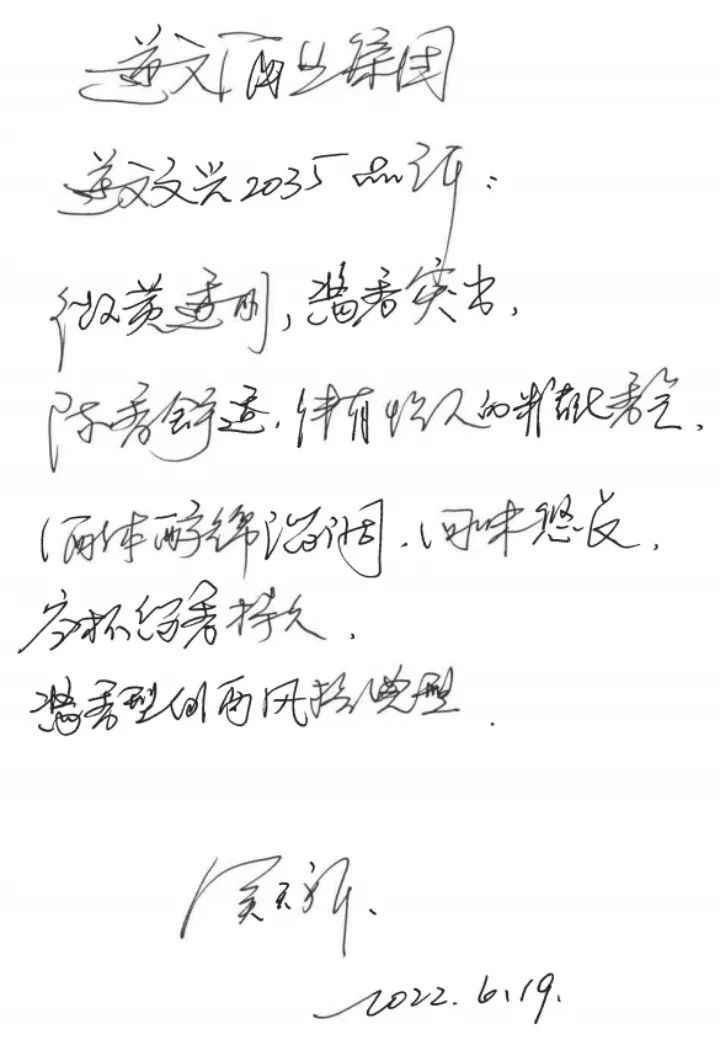 遵义酒业集团
遵义义兴2035品评：
微黄透明，酱香突出，
陈香舒适，伴有怡人的焦糊香气，
酒体醇绵协调，回味悠长，
空杯留香持久，
酱香型白酒风格典型．
2022.6.19.